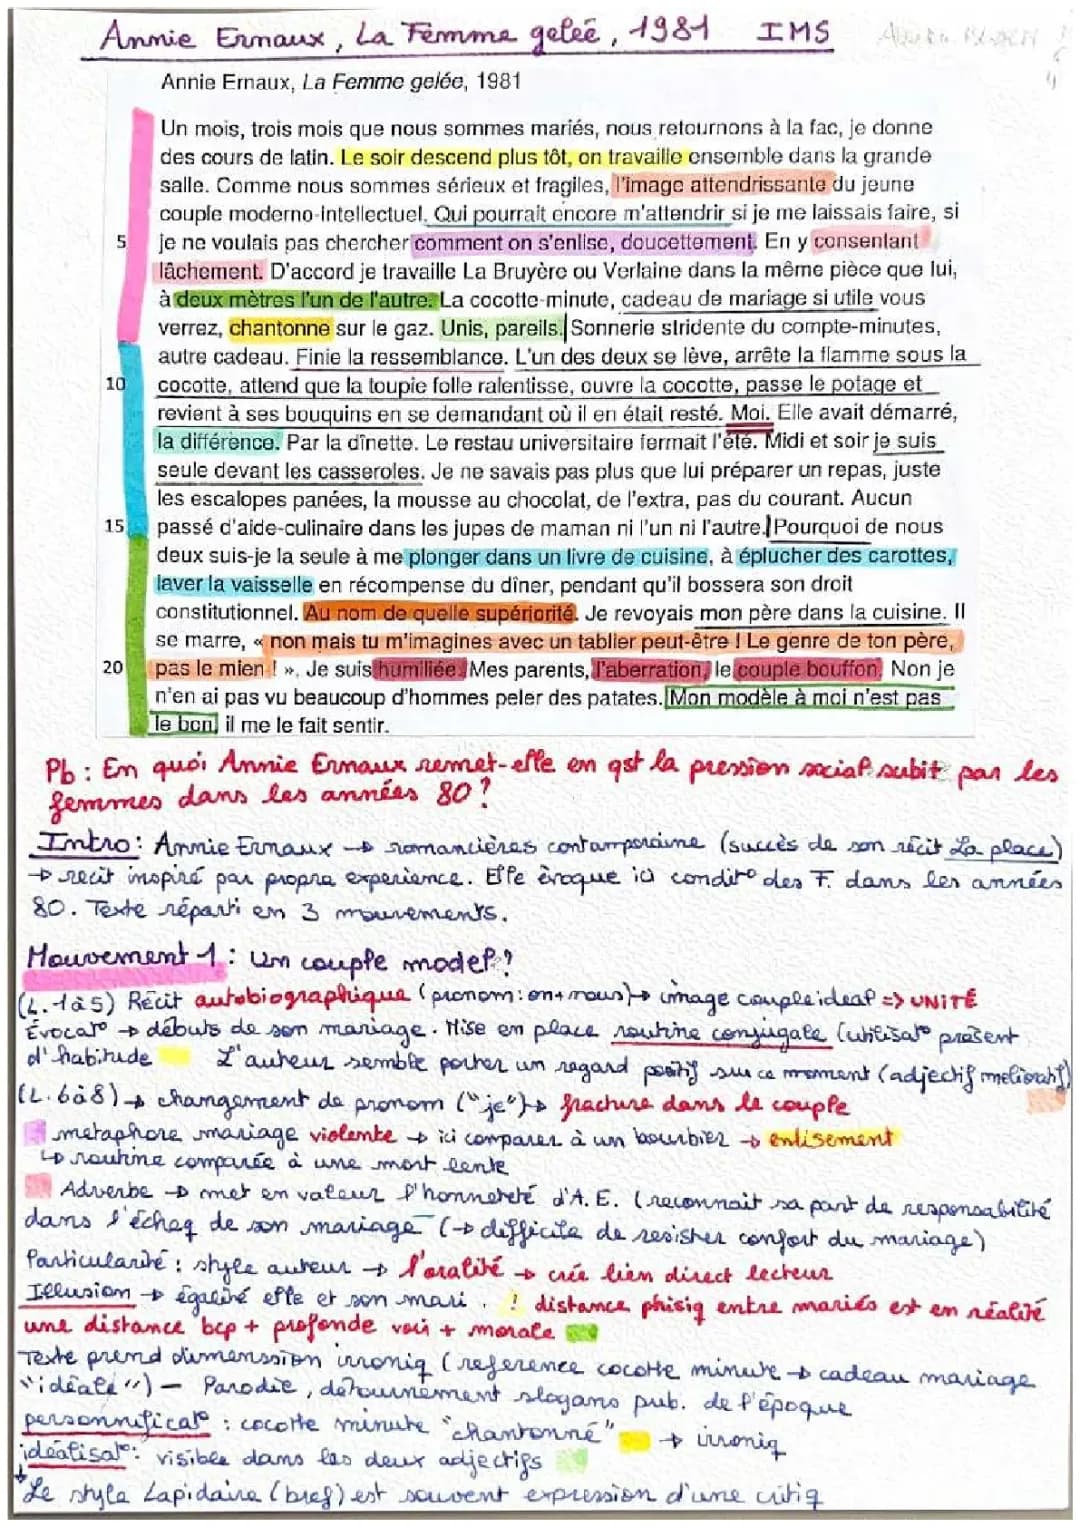 Annie Ernaux, La Femme gelée, 1981 IMS
Annie Ernaux, La Femme gelée, 1981
Un mois, trois mois que nous sommes mariés, nous retournons à la fac, je donne
des cours de latin. Le soir descend plus tôt, on travaille ensemble dans la grande
salle. Comme nous sommes sérieux et fragiles, l'image attendrissante du jeune
couple moderno-intellectuel. Qui pourrait encore m'attendrir si je me laissais faire, si
5 je ne voulais pas chercher comment on s'enlise, doucettement. En y consentant
lâchement. D'accord je travaille La Bruyère ou Verlaine dans la même pièce que lui,
à deux mètres l'un de l'autre. La cocotte-minute, cadeau de mariage si utile vous
verrez, chantonne sur le gaz. Unis, pareils. Sonnerie stridente du compte-minutes,
autre cadeau. Finie la ressemblance. L'un des deux se lève, arrête la flamme sous la
10 cocotte, attend que la toupie folle ralentisse, ouvre la cocotte, passe le potage et
revient à ses bouquins en se demandant où il en était resté. Moi. Elle avait démarré,
la différence. Par la dînette. Le restau universitaire fermait l'été. Midi et soir je suis
seule devant les casseroles. Je ne savais pas plus que lui préparer un repas, juste
les escalopes panées, la mousse au chocolat, de l'extra, pas du courant. Aucun
15 passé d'aide-culinaire dans les jupes de maman ni l'un ni l'autre. Pourquoi de nous
deux suis-je la seule à me plonger dans un livre de cuisine, à éplucher des carottes,
laver la vaisselle en récompense du dîner, pendant qu'il bossera son droit
constitutionnel. Au nom de quelle supériorité. Je revoyais mon père dans la cuisine. Il
se marre, « non mais tu m'imagines avec un tablier peut-être ! Le genre de ton père,
20 pas le mien ! ». Je suis humiliée. Mes parents, l'aberration, le couple bouffon. Non je
n'en ai pas vu beaucoup d'hommes peler des patates. Mon modèle à moi n'est pas
le bon, il me le fait sentir.
Pb : En quoi Annie Ernaux remet-elle en qst la pression social subit par les
femmes dans les années 80 ?
Intro : Annie Ernaux → romancières contemporaine (succès de son récit La place)
→ recit inspiré par propre experience. Elle évoque ici condit° des F. dans les années
80. Texte réparti en 3 mouvements.
Mouvement 1 : Un couple model ?
(L. 1 à 5) Récit autobiographique (pronom : on + nous) → image couple ideal => UNITÉ
Évocat° → débuts de son mariage. Mise en place routine conjugale (utilisat° présent
d'habitude L'auteur semble porter un regard positif sur ce moment (adjectif mélioratif)
(L. 6 à 8) → changement de pronom ("je") → fracture dans le couple
métaphore mariage violente → ici comparer à un bourbier → enlisement
↳ routine comparée à une mort lente
Adverbe → met en valeur l'honneteté d'A. E. (reconnait sa part de responsabilité
dans l'écheq de son mariage (→ difficile de resister confort du mariage)
Particularité : style auteur → l'oralité → crée lien direct lecteur
Illusion → égalité elle et son mari. ! distance phisiq entre mariés est en réalité
une distance bcp + profonde voir + morale
Texte prend dimenssion irroniq (reference cocotte minute → cadeau mariage
"idéale") - Parodie, détournement slogans pub. de l'époque
personnificat° : cocotte minute "chantonné" → irroniq
idéalisat° : visible dans les deux adjectifs
↓
Le style Lapidaire (bref) est souvent expression d'une critiq